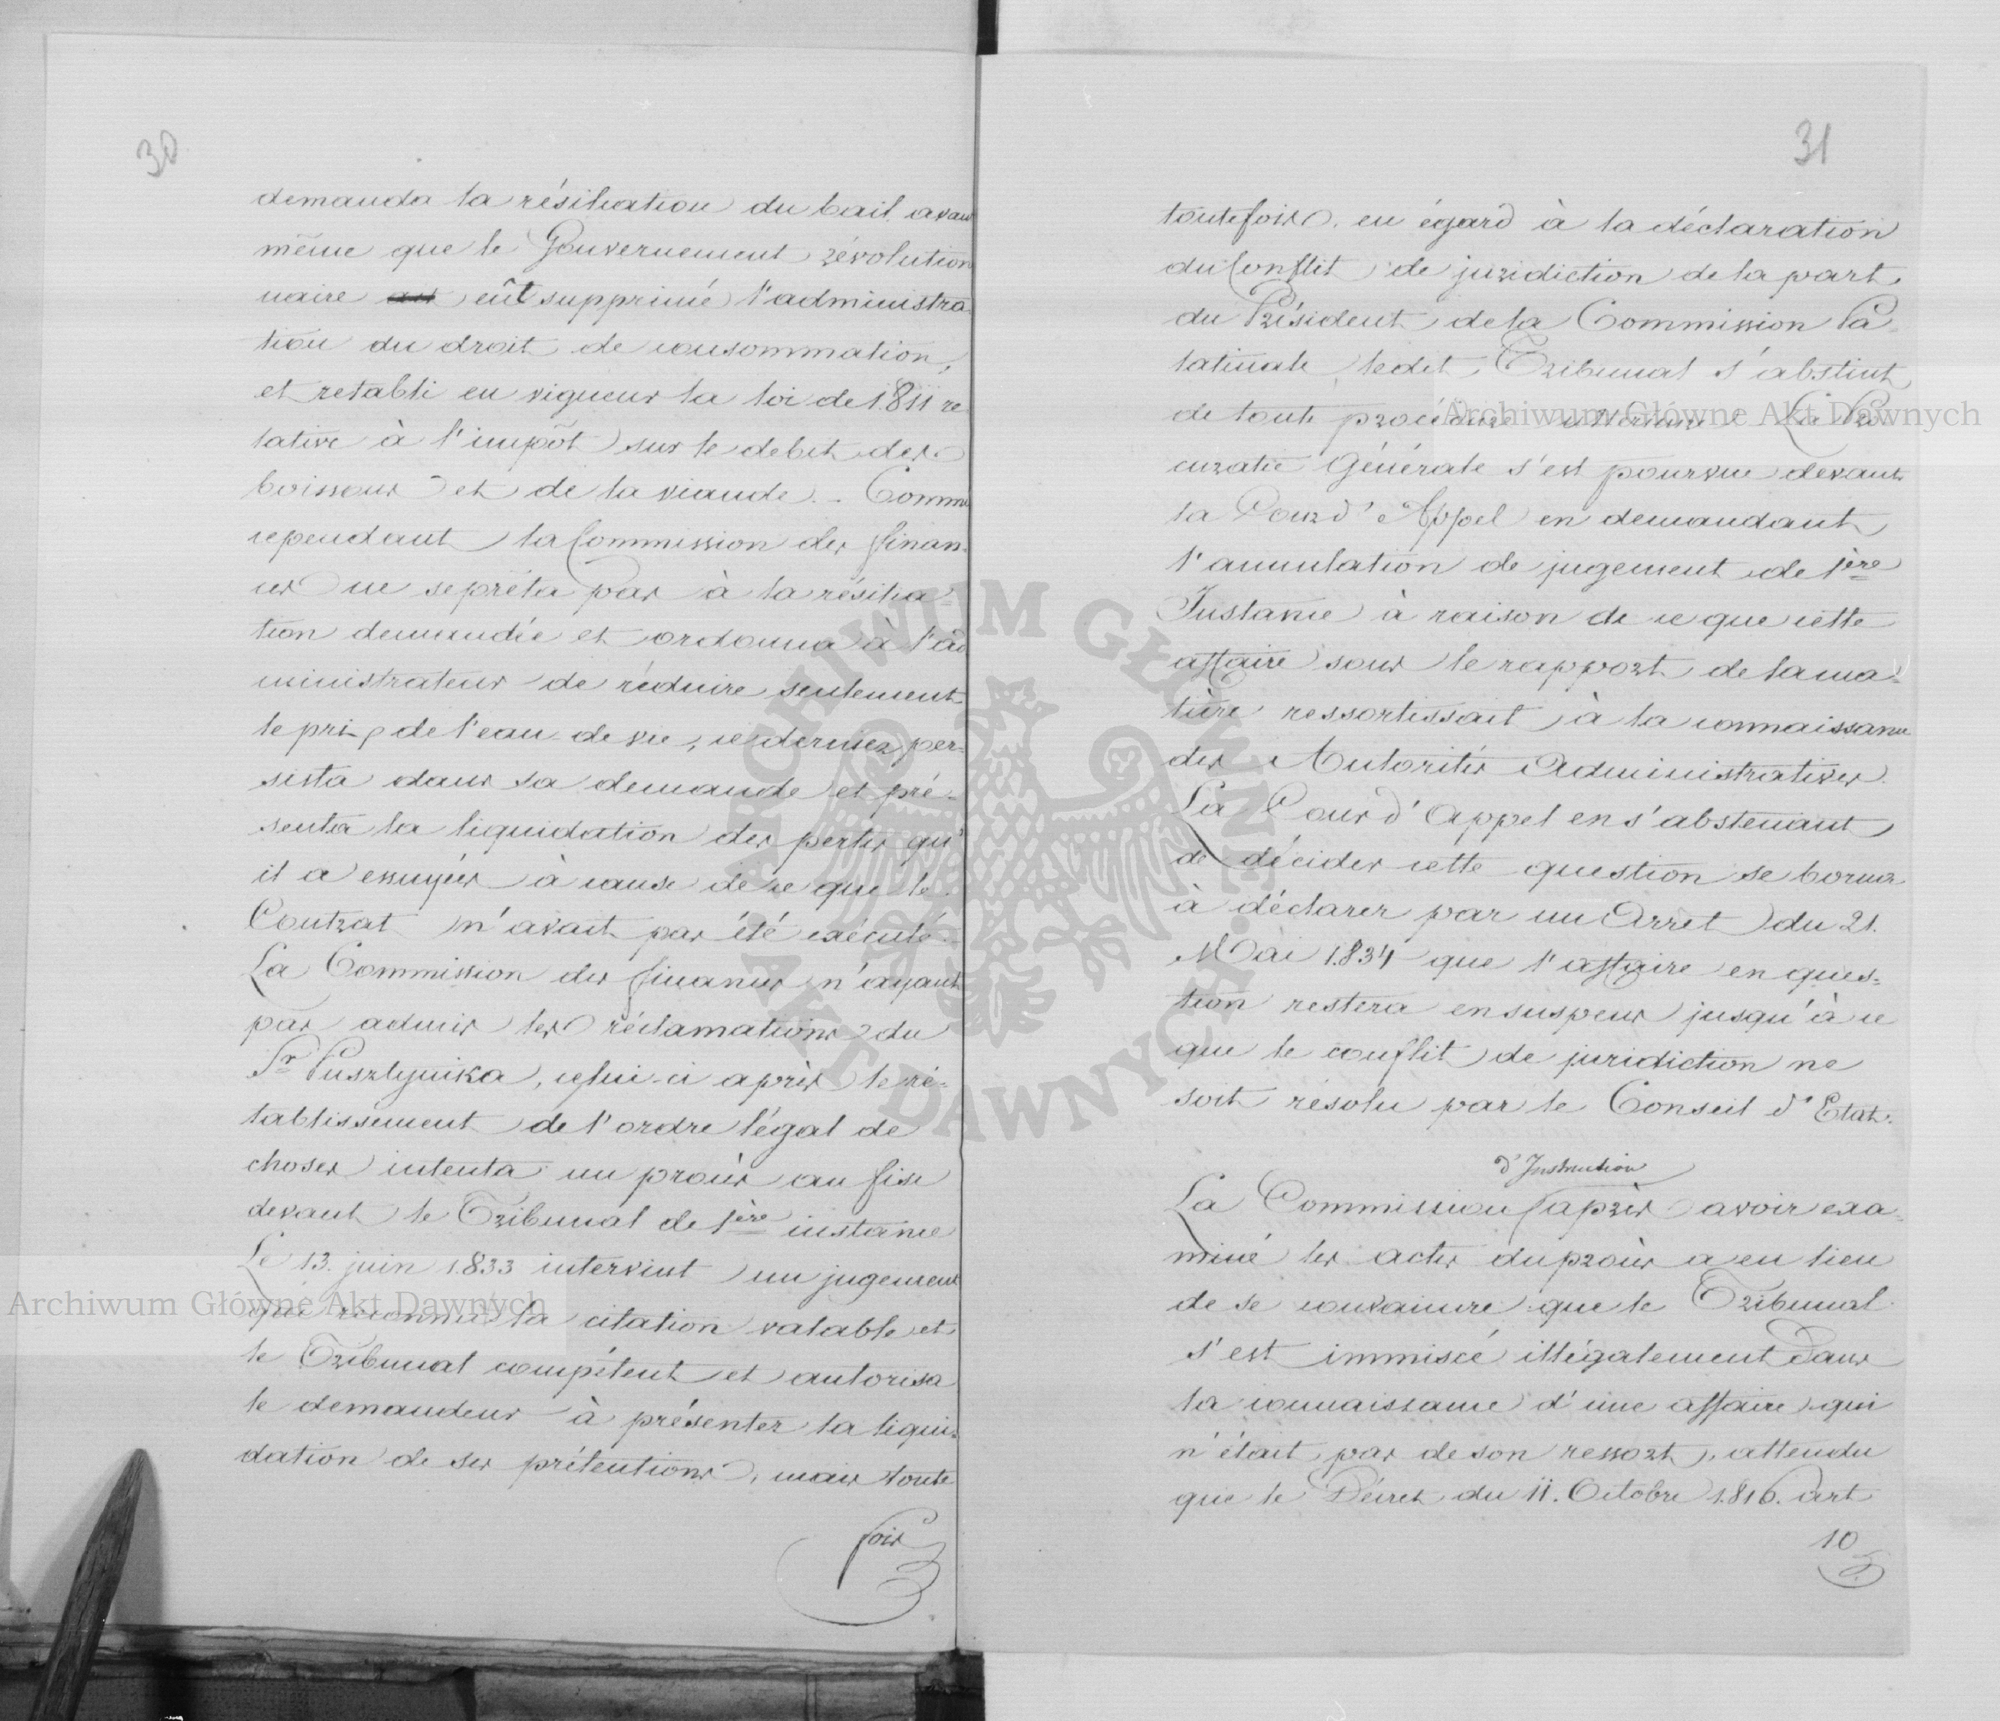 30
demanda la résiliation du bail avant
même que le Gouvernement révolution
naire eût supprimé l'administra
tion du droit de consommation,
et retabli en vigueur la loi de 1811 re
lative à l'impôt sur le debit des
boissons et de la viande. Comme
cependant la Commission des finan-
ces ne se prêta pas à la résilia-
tion demandée et ordonna à l'ad
ministrateur de réduire seulement
le prix de l'eau de vie, ce dernier per-
sista dans sa demande et pré-
senta la liquidation des pertes qu'
il a essuyées à cause de ce que le
Contrat n'avait pas été exécuté.
La Commission des finances n'ayant
pas admis les réclamations du
Sr Pusztynika, celui-ci après le ré-
tablissement de l'ordre légal de
choses intenta un procès au fisc
devant le Tribunal de 1ère instance
Le 13. juin 1833 intervint un jugement
qui reconnut la citation valable et
le Tribunal compétent et autorisa
le demandeur à présenter la liqui-
dation de ses prétentions, mais toute
fois
31
toutefois, eu égard à la déclaration
du Conflit de juridiction de la part
du Président de la Commission Pa-
latinale, ledit Tribunal s'abstint
de toute procédure ultérieure. La Pro
curatie Générale s'est pourvue devant
la Cour d'Appel en demandant
l'annulation de jugement de 1ère
Instance à raison de ce que cette
affaire sous le rapport de la ma-
tière ressortissait à la connaissance
des Autorités Administratives.
La Cour d'Appel en s'abstenant
de décider cette question se borna
à déclarer par un Arrêt du 21.
Mai 1834 que l'affaire en ques-
tion restera en suspens jusqu'à ce
que le conflit de juridiction ne
soit résolu par le Conseil d'Etat.
d'Instruction
La Commission après avoir exa-
miné les actes du procès a eu lieu
de se convaincre que le Tribunal
s'est immiscé illégalement dans
la connaissance d'une affaire qui
n'était pas de son ressort, attendu
que le Décret du 11. Octobre 1816. art
10
Archiwum Główne Akt Dawnych
Archiwum Główne Akt Dawnych
ARCHIWUM GŁÓWNE AKT DAWNYCH